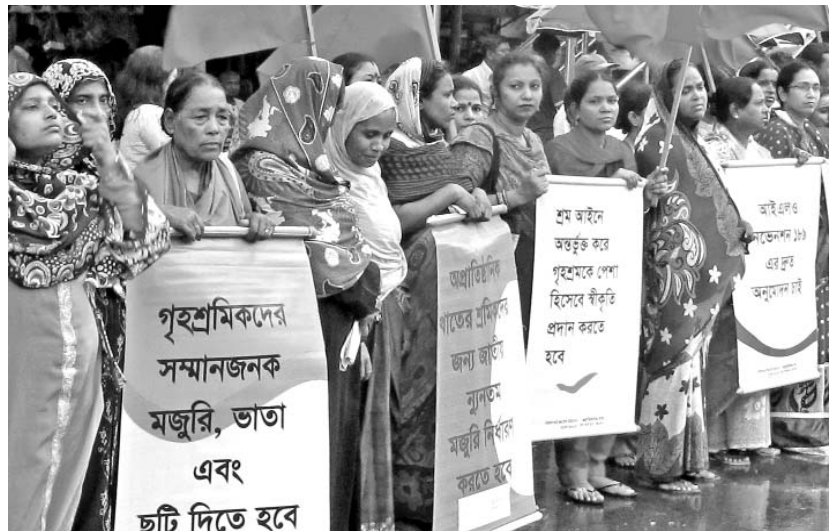 গৃহশ্রমিকদের
সম্মানজনক
মজুরি, ভাতা
এবং
ছুটি দিতে হবে
অপ্রাতিষ্ঠানিক
খাতের শ্রমিকদের
জন্য জাতীয়
ন্যূনতম
মজুরি নির্ধারণ
করতে হবে
শ্রম আইনে
অন্তর্ভুক্ত করে
গৃহশ্রমকে পেশা
হিসেবে স্বীকৃতি
প্রদান করতে
হবে
আইএলও
নভেনশন ১৮৯
এর দ্রুত
অনুমোদন চাই